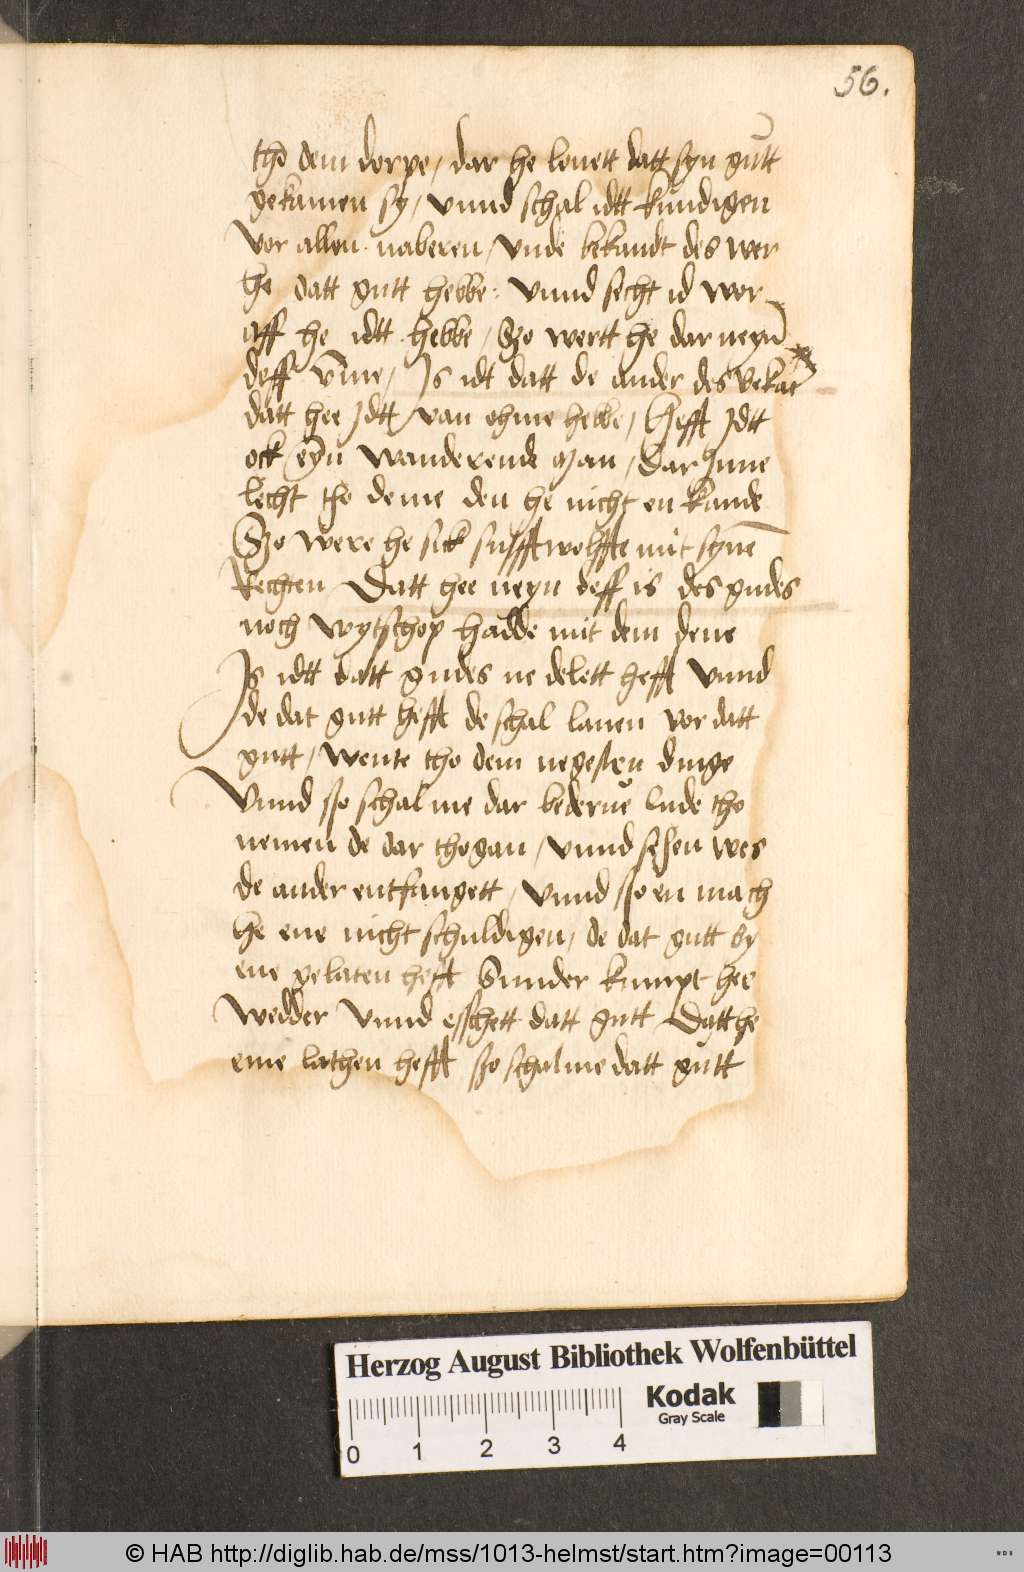 56.
tho dem dorpe / dar he louett datt syn gutt
gekamen sy / vnnd schal idtt kundigen
Vor allen naberen / vnde bekandt des wer
he datt gutt hebbe : vnnd secht id wor
aff he idtt hebbe / Szo wertt he dar neyn
deff vme / Js idt datt de ander des bekat
datt hee Jdtt van ohme hebbe / Hefft Jdtt
ock eyn wanderende man / Dar Jnne
lecht tho deme den he nicht en kande
Szo were he sick sulfftwolffte mit syne
Rechten / Datt hee neyn deff is des gudes
noch wytschop hadde mit dem dene
Js idtt datt gudes ne delett hefft vnnd
de dat gutt hefft de schal lauen vor datt
gutt / wente tho dem negesten dinge
Vnnd sso schal me dar bederue lude tho
nemen de dar thogan / vnnd sehen wes
de ander entfangett / vnnd sso en mach
he ene nicht schuldigen / de dat gutt by
ene gelaten hefft Sunder kumpt hee
wedder vnnd esschett datt gutt / Datt he
eme lathen hefft szo schal me datt gutt
Herzog August Bibliothek Wolfenbüttel
Kodak
Gray Scale
0 1 2 3 4
© HAB http://diglib.hab.de/mss/1013-helmst/start.htm?image=00113